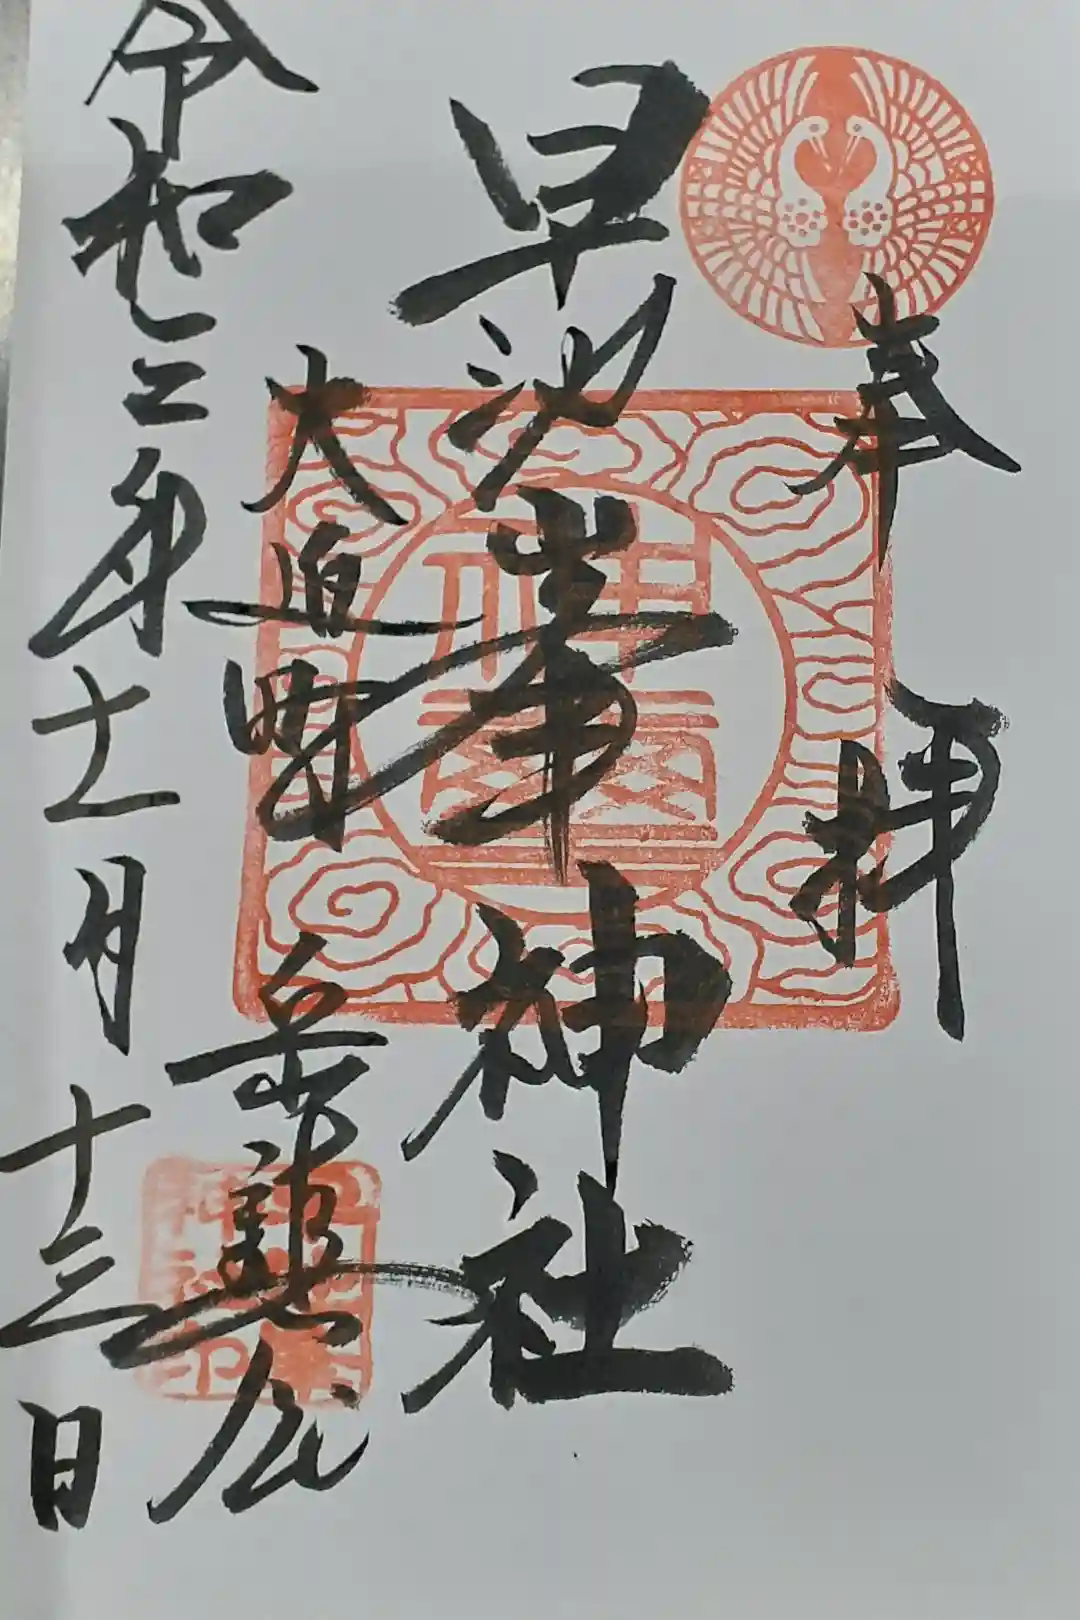 奉拝
早池峯神社
大迫町
岳
令和二年十一月十三日